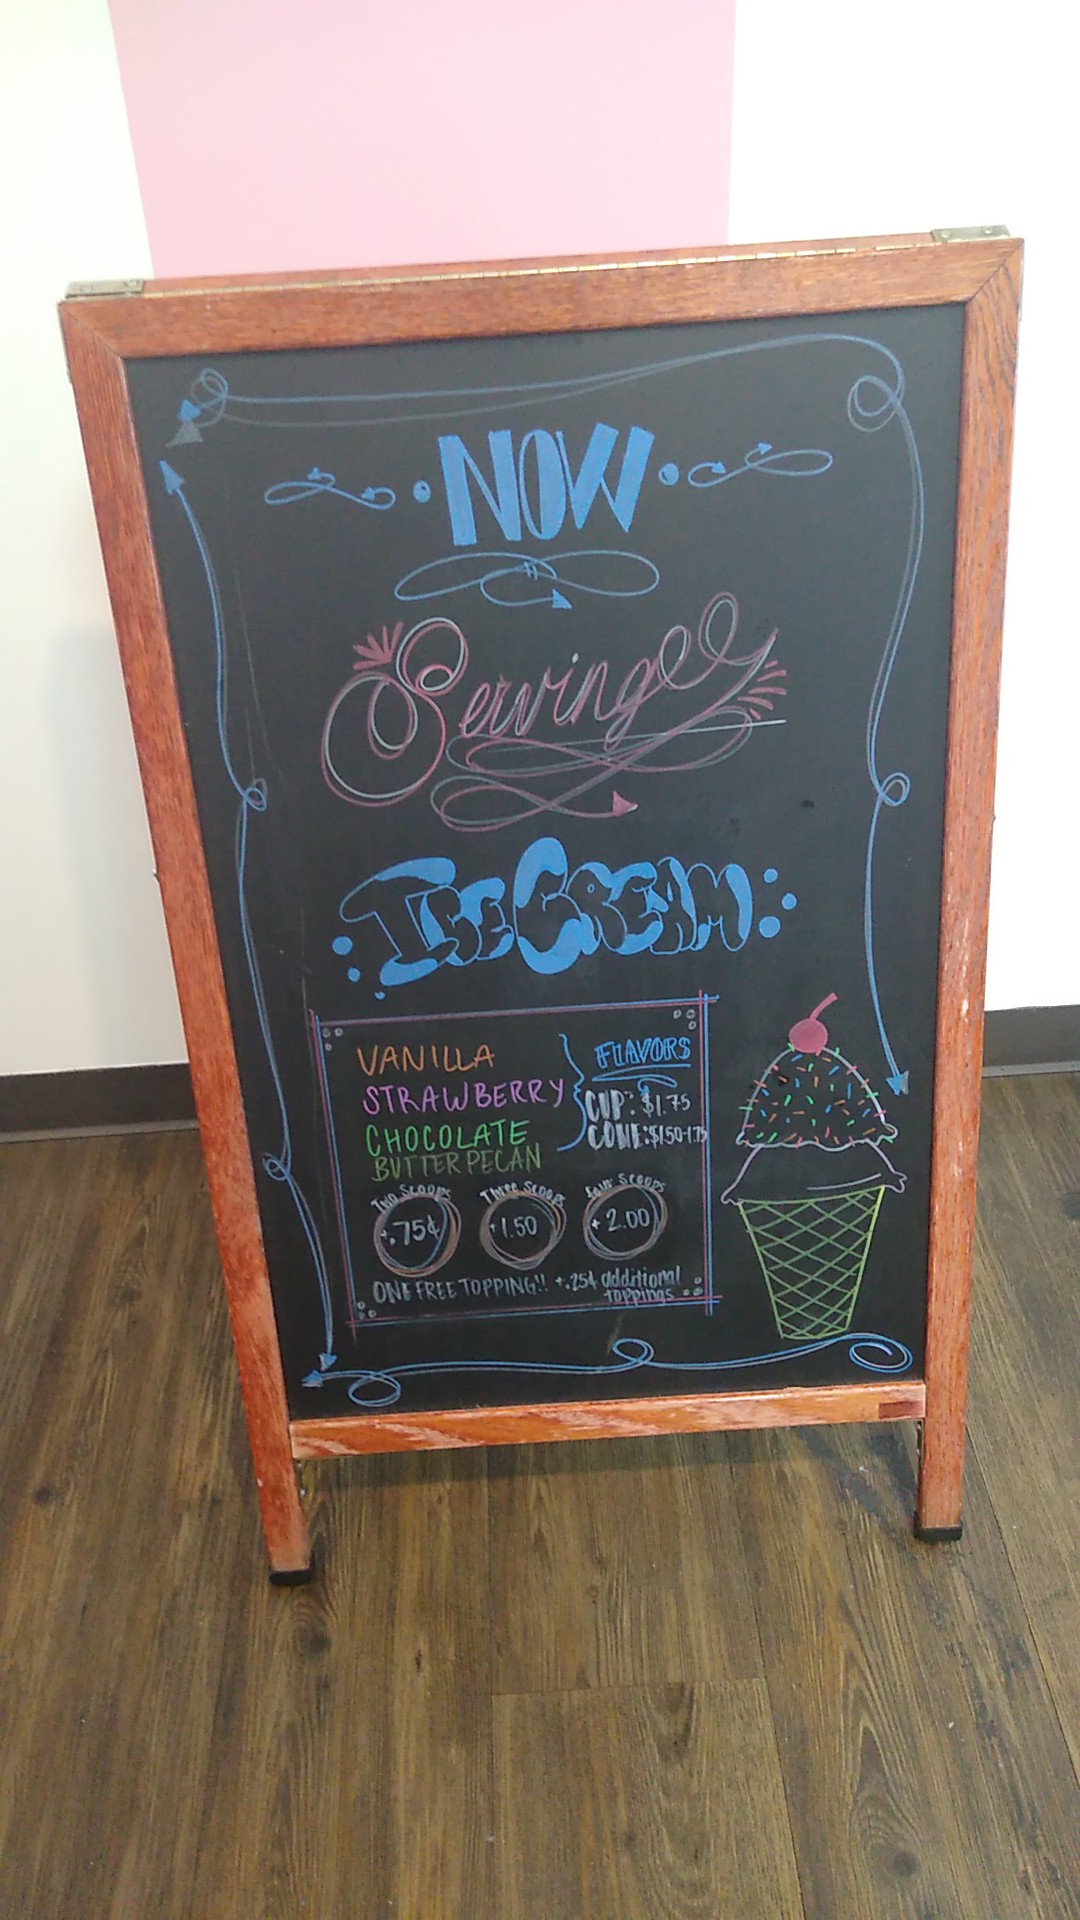 NOW
Serving
ICE CREAM
VANILLA
STRAWBERRY
CHOCOLATE
BUTTER PECAN
FLAVORS
CUP: $1.75
CONE: $1.50-1.75
Two Scoops
+.75¢
Three Scoops
+1.50
Four Scoops
+2.00
ONE FREE TOPPING!! +.25¢ additional
toppings